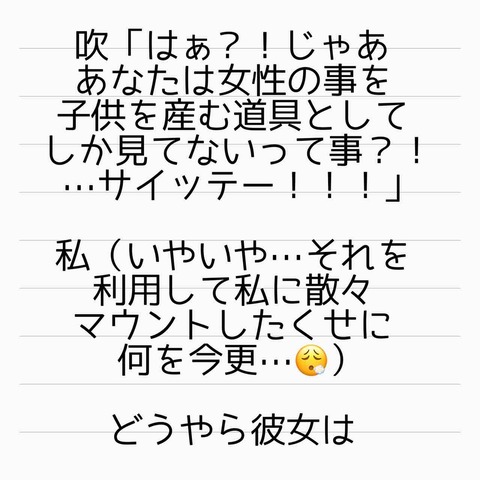 吹「はぁ？！じゃあ
あなたは女性の事を
子供を産む道具として
しか見てないって事？！
…サイッテー！！！」
私（いやいや…それを
利用して私に散々
マウントしたくせに
何を今更…😮‍💨）
どうやら彼女は